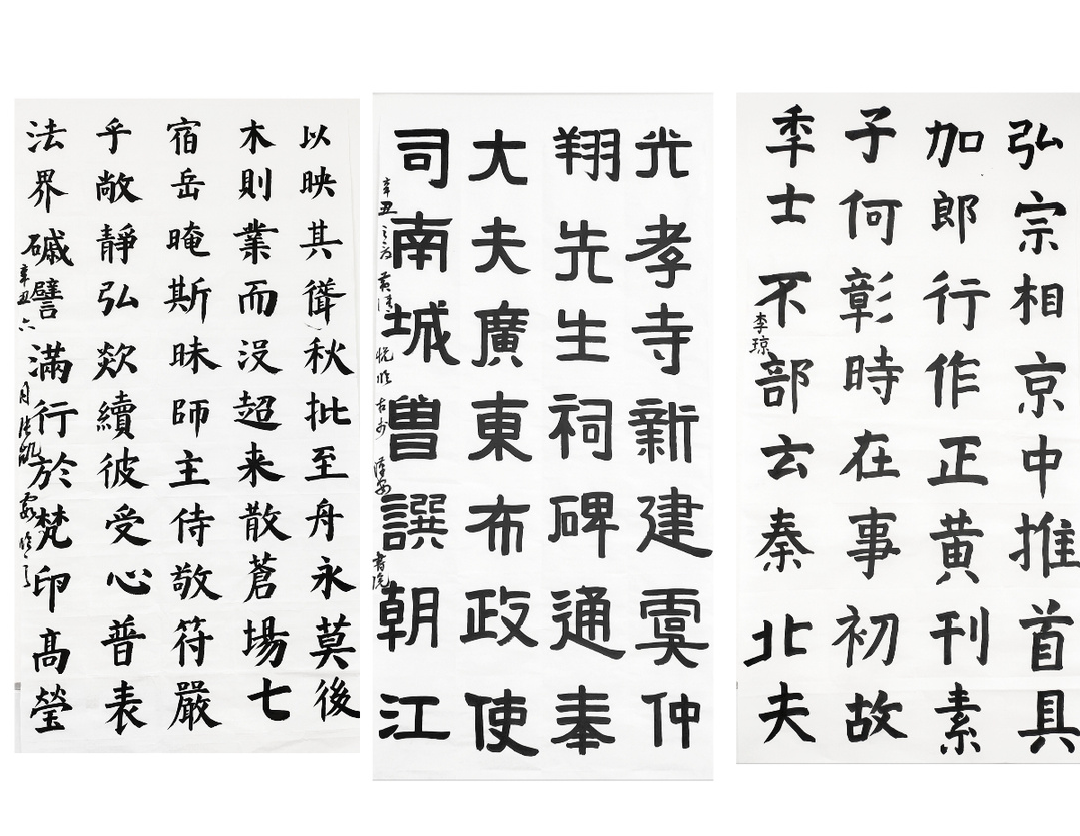 以映其聳秋批至舟永莫後
木則業而没超来散蒼場七
宿岳晻斯昧師主侍敬符嚴
乎敞靜弘欻續彼受心普表
法界譬滿行於梵印髙瑩
辛丑六月
光孝寺新建虞仲
翔先生祠碑通奉
大夫廣東布政使
司南城曽譔朝江
辛丑 書院
弘宗相京中推首具
加郎行作正黄刊素
子何彰時在事初故
季士不部云秦北夫
李琼